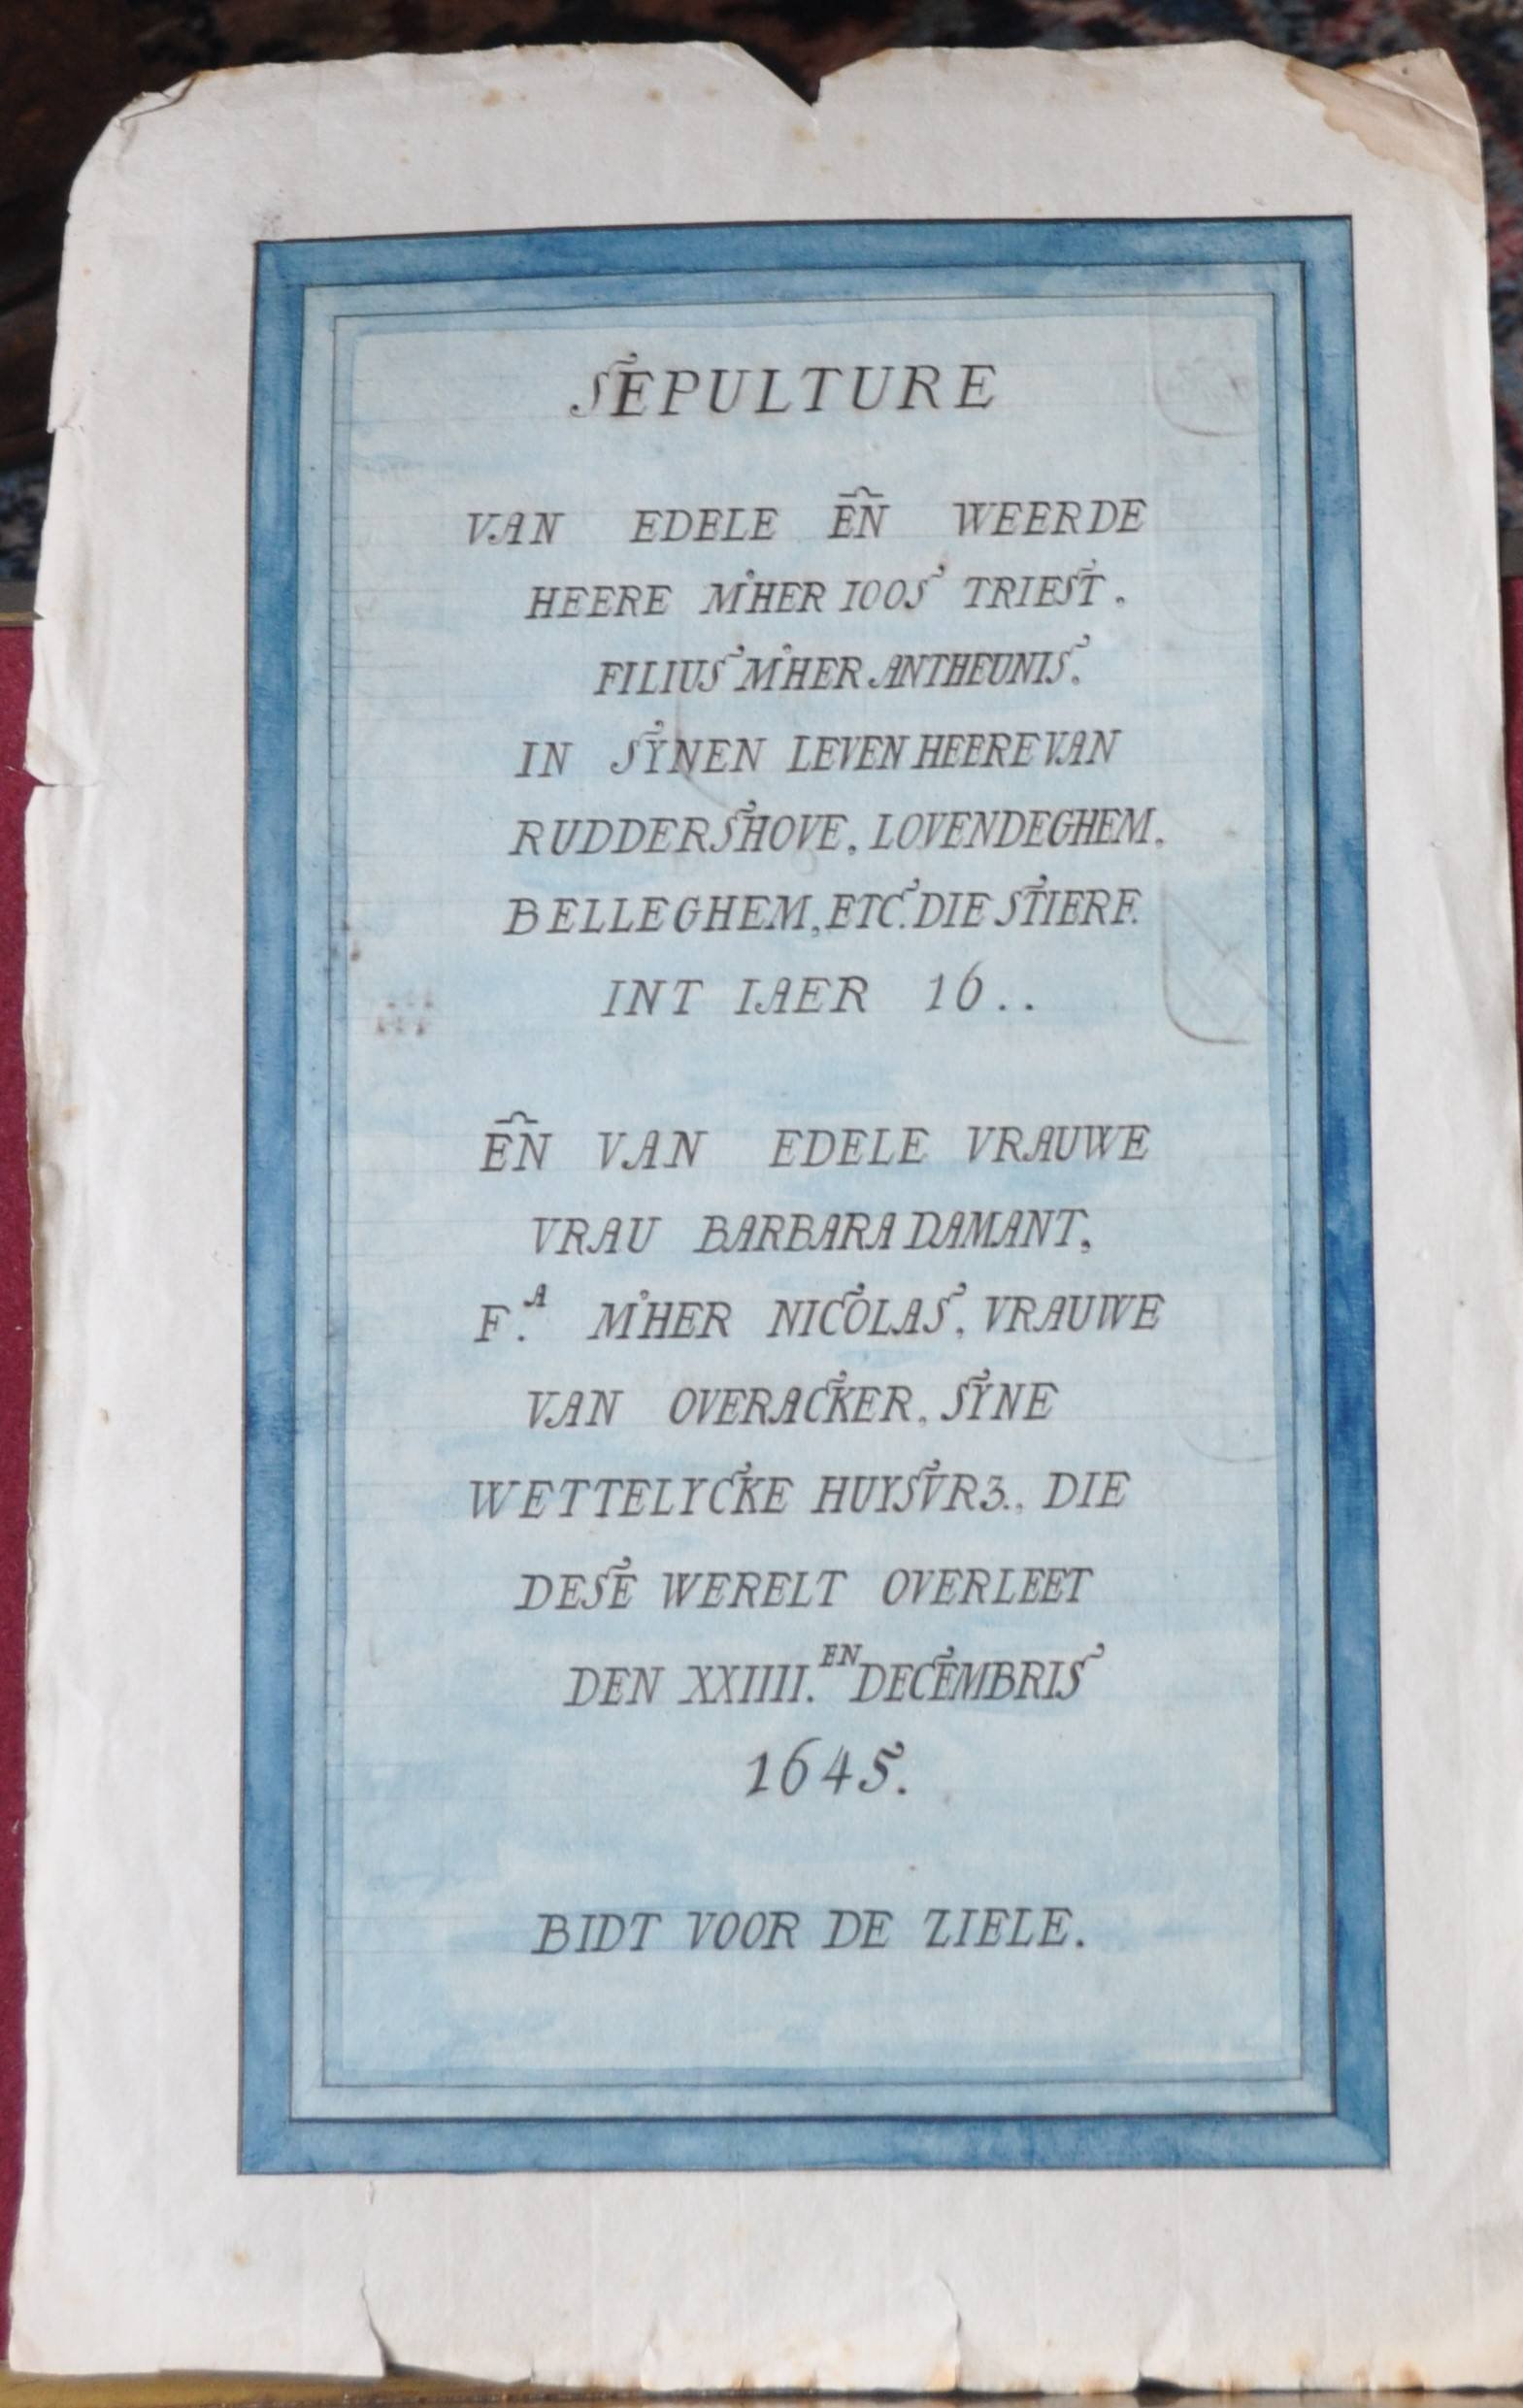 SEPULTURE
VAN EDELE EÑ WEERDE
HEERE M'HER IOOS TRIEST.
FILIUS M'HER ANTHEUNIS.
IN SYNEN LEVEN HEERE VAN
RUDDERSHOVE, LOVENDEGHEM,
BELLEGHEM, ETC. DIE STIERF.
INT IAER 16..
EÑ VAN EDELE VRAUWE
VRAU BARBARA DAMANT,
F.A M'HER NICOLAS, VRAUWE
VAN OVERACKER, SYNE
WETTELYCKE HUYSVR3., DIE
DESE WERELT OVERLEET
DEN XXIIII.EN DECEMBRIS
1645.
BIDT VOOR DE ZIELE.